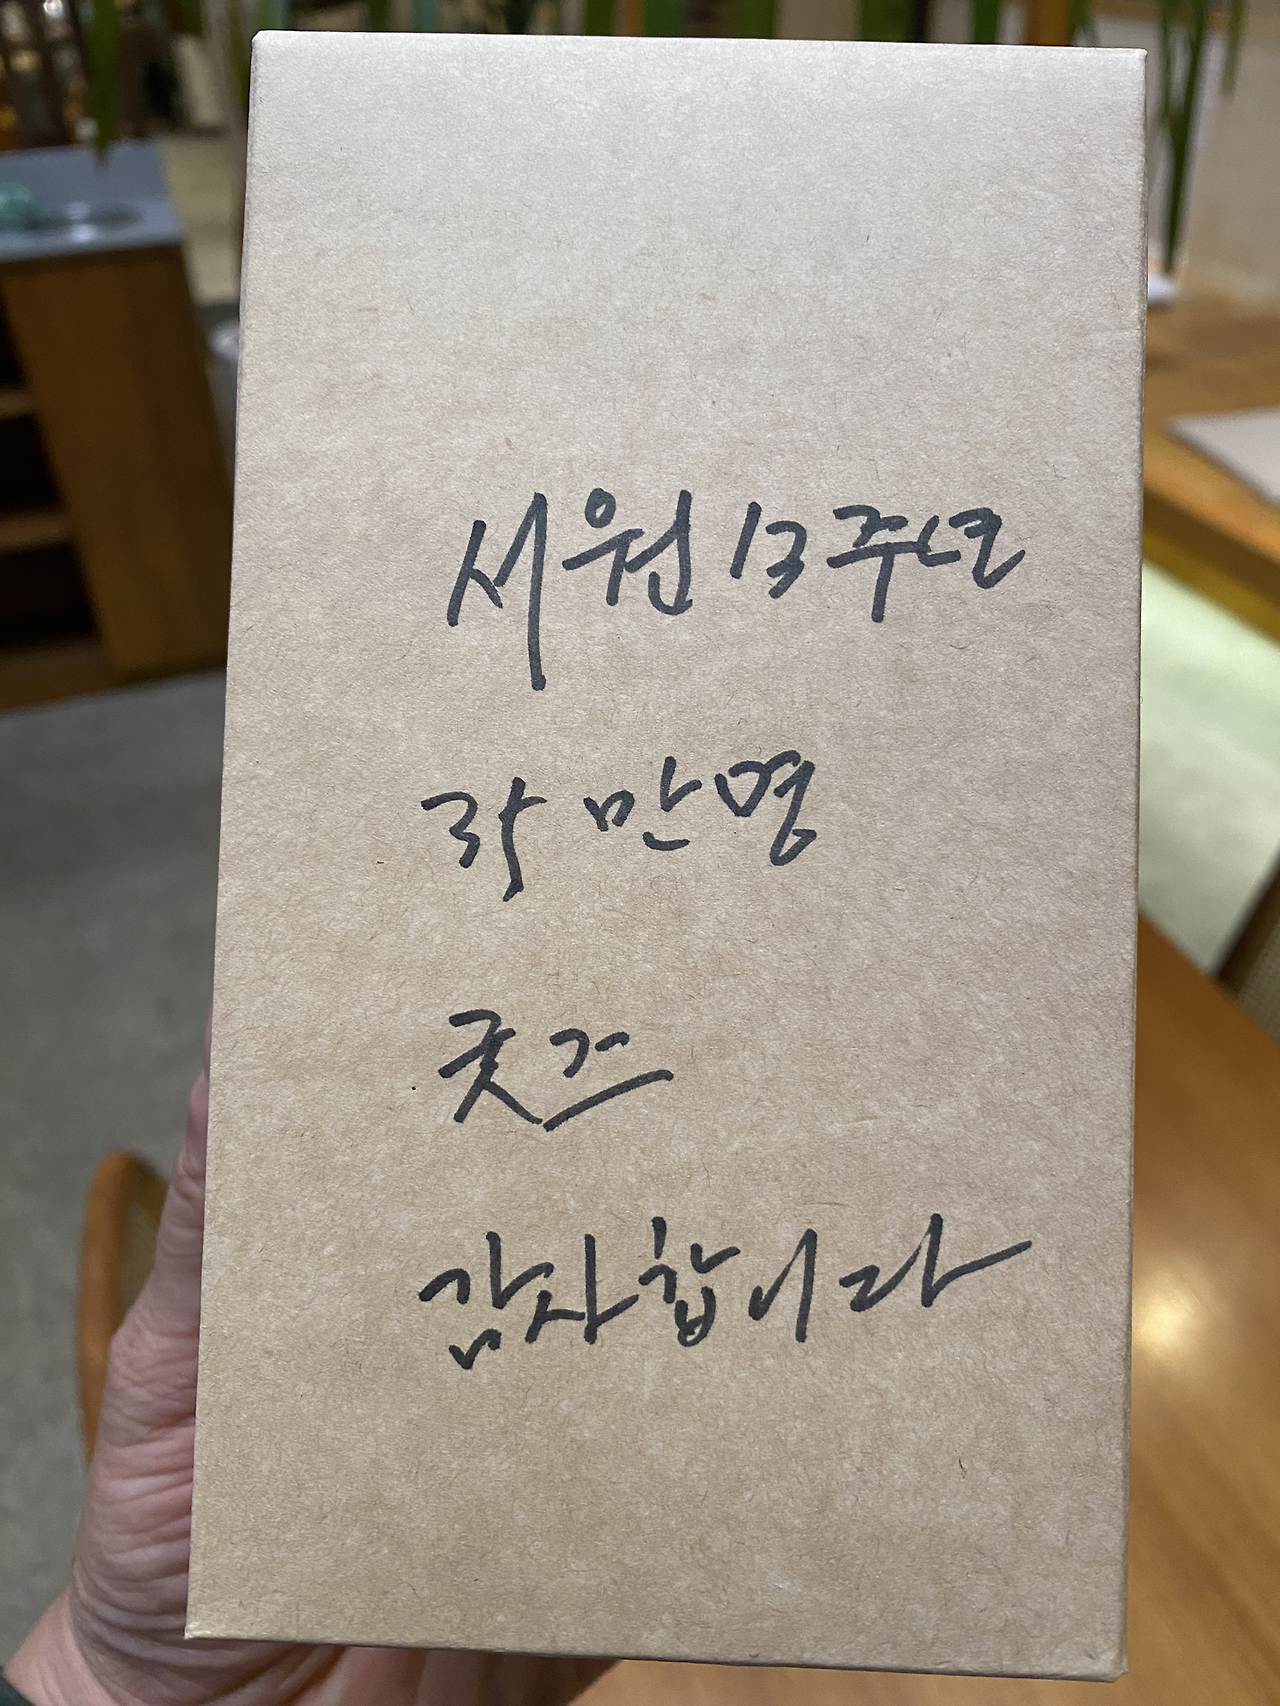 서원 13주년
35 만명
굿즈
감사합니다